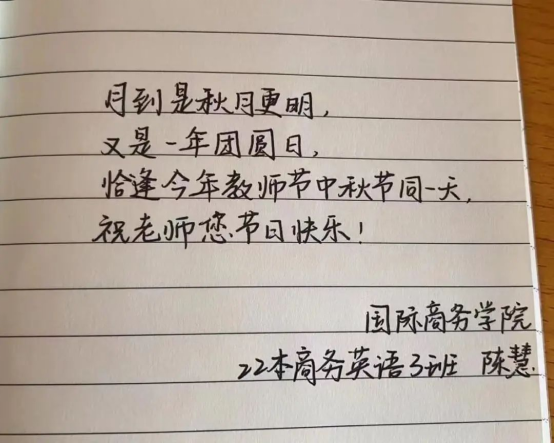 月到是秋月更明，
又是一年团圆日，
恰逢今年教师节中秋节同一天，
祝老师您节日快乐！
国际商务学院
22本商务英语3班 陈慧